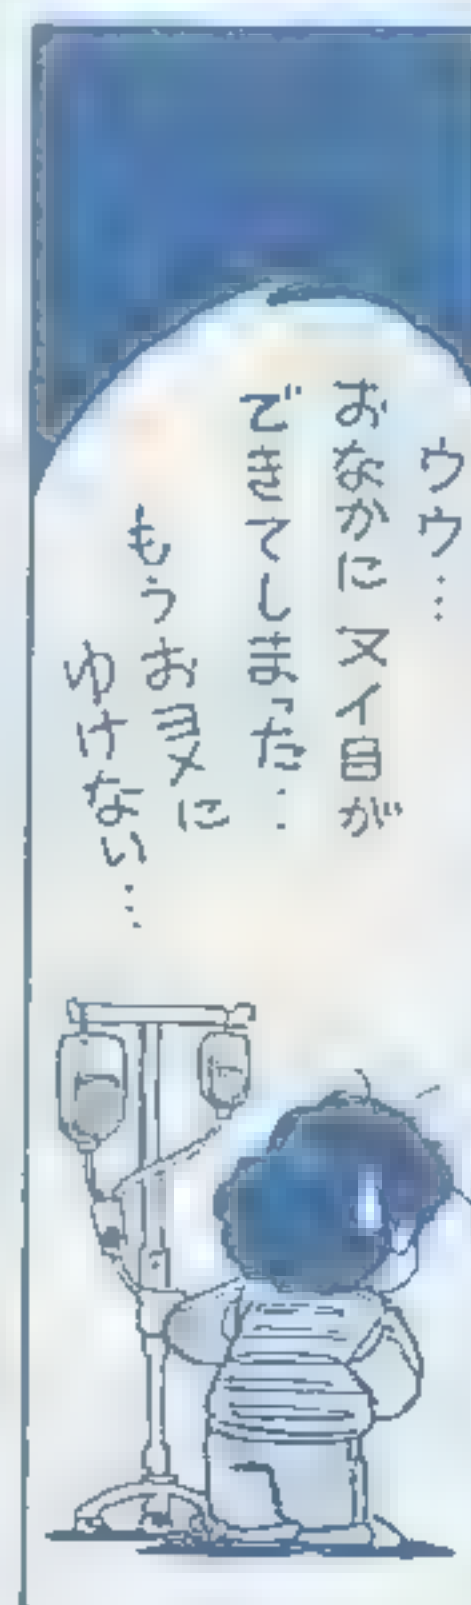 ウウ…
おなかに ヌイ目が
できてしまった…
もうおヨメに
ゆけない…